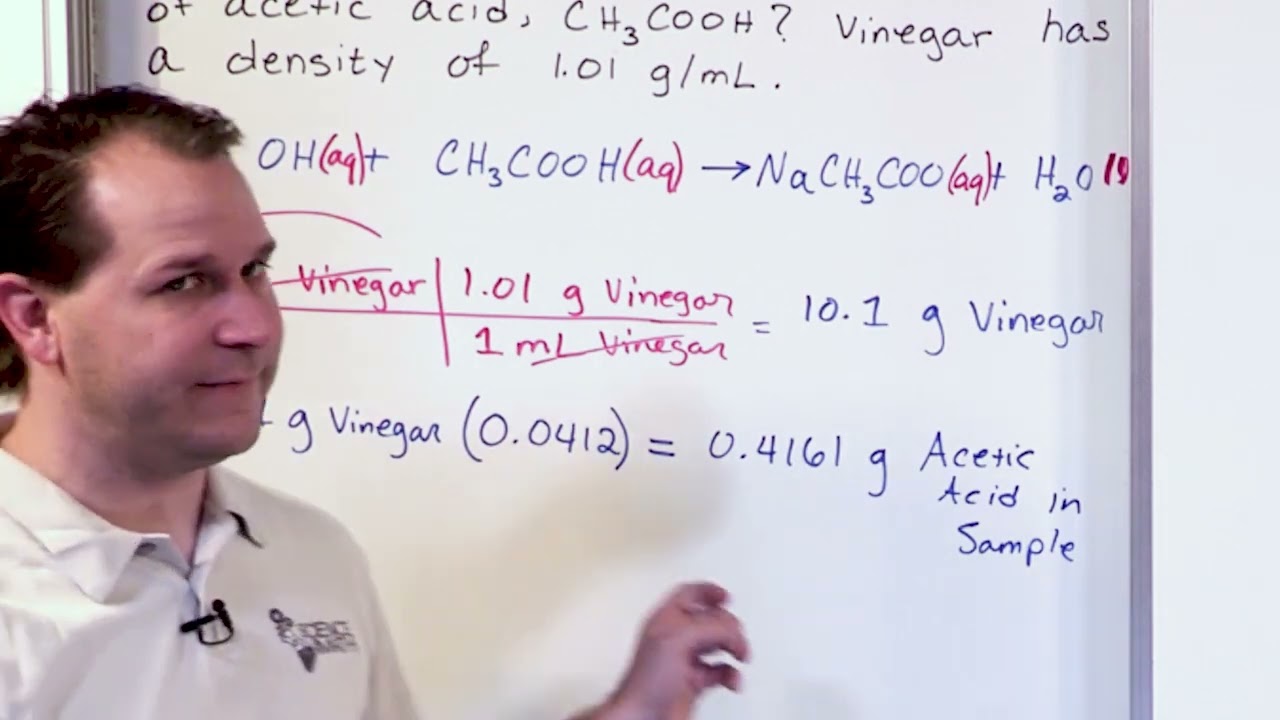 of acetic acid, CH₃COOH? Vinegar has
a density of 1.01 g/mL.
OH(aq)+ CH₃COOH(aq) → NaCH₃COO(aq)+ H₂O(l)
Vinegar | 1.01 g Vinegar
1 mL Vinegar
= 10.1 g Vinegar
g Vinegar (0.0412) = 0.4161 g Acetic
Acid in
Sample